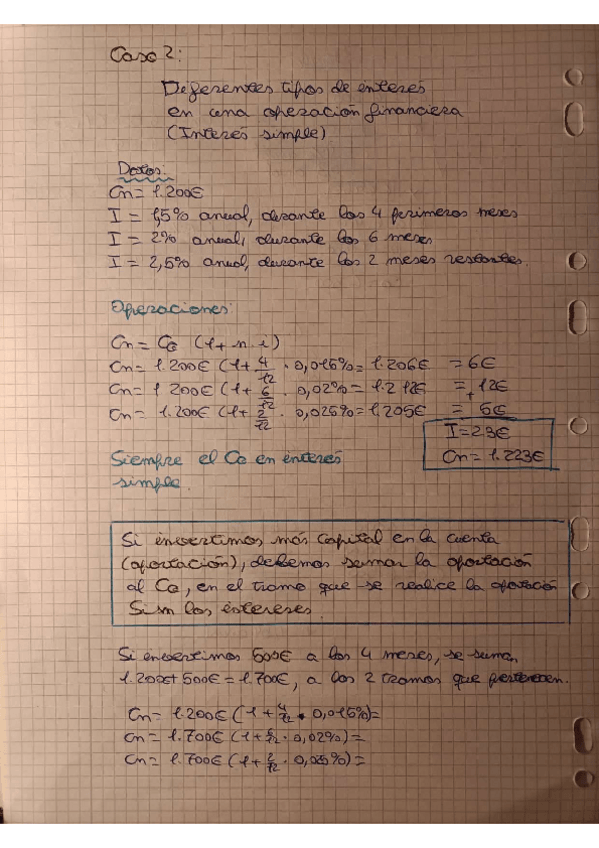 Caso 2:
Diferentes tipos de interés
en una operación financiera
(Interés simple)
Datos:
Cn = 1.200€
I = 1,5% anual, durante los 4 primeros meses
I = 2% anual, durante los 6 meses
I = 2,5% anual, durante los 2 meses restantes.
Operaciones:
Cn = Co (1 + n · i)
Cn = 1.200€ (1 + 4/12 · 0,015% = 1.206€ = 6€
Cn = 1 200€ (1 + 6/12 · 0,02% = 1.212€ = + 12€
Cn = 1.200€ (1 + 2/12 · 0,025% = 1.205€ = 5€
I = 23€
Cn = 1.223€
Siempre el Co en interés
simple
Si invertimos más capital en la cuenta
(aportación), debemos sumar la aportación
al Co, en el tramo que se realice la aportación
Sisn los intereses
Si invertimos 500€ a los 4 meses, se suman
1.200€ + 500€ = 1.700€, a los 2 tramos que pertenecen.
Cn = 1.200€ (1 + 4/12 · 0,015%) =
Cn = 1.700€ (1 + 6/12 · 0,02%) =
Cn = 1.700€ (1 + 2/12 · 0,025%) =